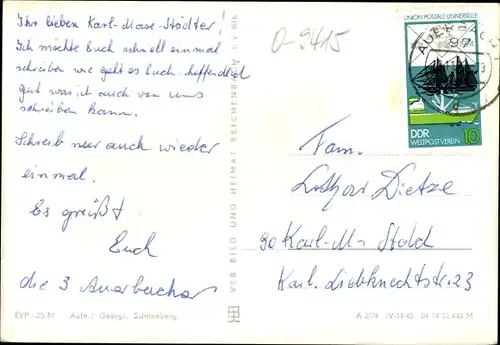 Ihr lieben Karl-Marx-Städter
Ich möchte Euch schnell einmal
schreiben wie geht es Euch hoffendlich
gut was ich auch von uns
schreiben kann.
Schreib nur auch wieder
einmal.
Es grüßt
Euch
die 3 Auerbacher
EVP -,25 M Aufn.: Georgi, Schneeberg
VEB BILD UND HEIMAT REICHENBACH I.V. BIK
O-9415
UNION POSTALE UNIVERSELLE
DDR 10
WELTPOSTVEREIN
AUERBACH
97
Fam.
Lothar Dietze
90 Karl-M-Stadt
Karl. Liebknechtstr. 23
A 2/74 IV-14-45 04 14 22 448 M